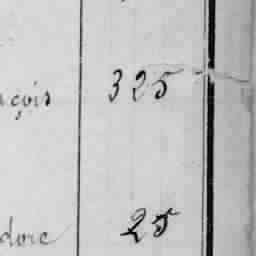 çois 325
dore 25